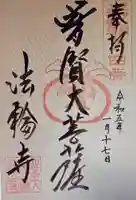 奉拝
令和五年
一月十七日
普賢大菩薩
法輪寺